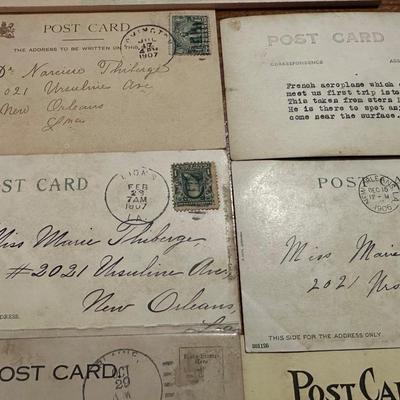 POST CARD
THE ADDRESS TO BE WRITTEN ON THIS
1907
Dr Narcisse Thiberge
2021 Ursuline Ave
New Orleans
POST CARD
CORRESPONDENCE
ADDRESS
French aeroplane which c
meet us first trip into
This taken from stern l
He is there to spot any
come near the surface.
POST CARD
LIONS
FEB
23
7AM
1907
LA.
Miss Marie Thiberge
#2021 Ursuline Ave
New Orleans,
La
ADDRESS.
POSTC
NEW ORLEANS, LA
DEC 10
12 - M
1906
Miss Marie
2021 Urs
THIS SIDE FOR THE ADDRESS ONLY.
POST CARD
OCT
29
POST CA